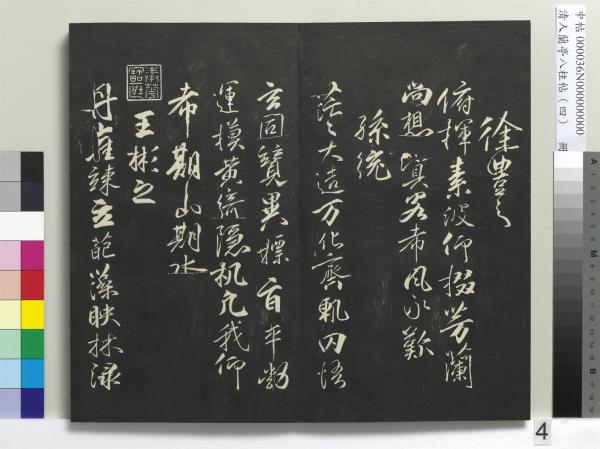 中帖 000036N000000000
清人蘭亭八柱帖（四）
徐豐之
俯揮素波仰掇芳蘭
尚想嘉客希風永歎
孫統
茫〻大造万化齊軌罔悟
玄同競異標旨平勃
運模黃綺隱机凡我仰
希期山期水
王彬之
丹崖竦立葩藻映林淥
4